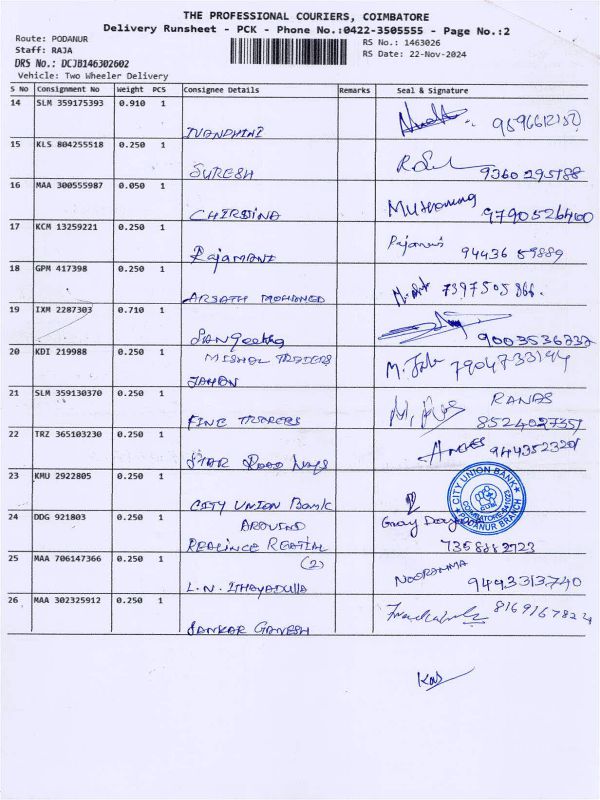 THE PROFESSIONAL COURIERS, COIMBATORE
Delivery Runsheet - PCK - Phone No.:0422-3505555 - Page No.:2
Route: PODANUR
RS No.: 1463026
Staff: RAJA
RS Date: 22-Nov-2024
DRS No.: DCJB146302602
Vehicle: Two Wheeler Delivery
S No Consignment No Weight PCS Consignee Details Remarks Seal & Signature
14 SLM 359175393 0.910 1
15 KLS 804255518 0.250 1
SURESH 9360295188
16 MAA 300555987 0.050 1
9790526400
17 KCM 13259221 0.250 1
Rajamani 94436 59889
18 GPM 417398 0.250 1
ARSATH MOHAMED 7397505866.
19 IXM 2287303 0.710 1
Sangeetha 9003536737
20 KDI 219988 0.250 1
MISHAL TRADERS 7904733194
21 SLM 359130370 0.250 1
RANAS
FINE TRADERS 8524027351
22 TRZ 365103230 0.250 1
STAR Road Ways 944352320
23 KMU 2922805 0.250 1
CITY UNION Bank
CITY UNION BANK
COIMBATORE
PODANUR BRANCH
24 DDG 921803 0.250 1
AROUND
RELINCE RETAIL
(2)
25 MAA 706147366 0.250 1
NOORAMMA
L.N. ITHAYADULLA 9443313740
26 MAA 302325912 0.250 1
8169167824
SANKAR GANESH